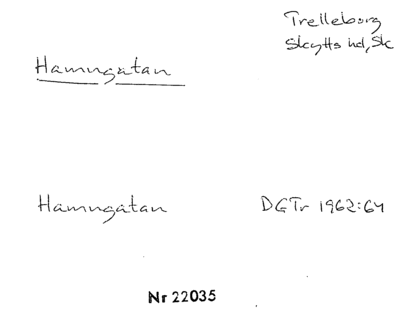 Trelleborg
Skytts hd, Sk
Hamngatan
Hamngatan DGTr 1962:64
Nr 22035